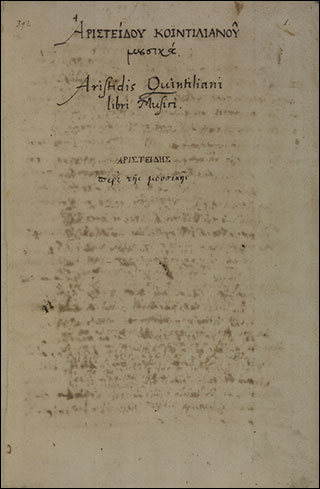 Ἀριστείδου Κοϊντιλιανοῦ
μουσικά.
Aristidis Quintiliani
libri Musici.
ΑΡΙΣΤΕΙΔΗΣ
περὶ τῆς μουσικῆς